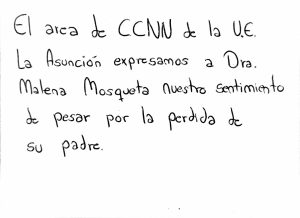 El area de CCNN de la U.E.
La Asunción expresamos a Dra.
Malena Mosqueta nuestro sentimiento
de pesar por la perdida de
su padre.